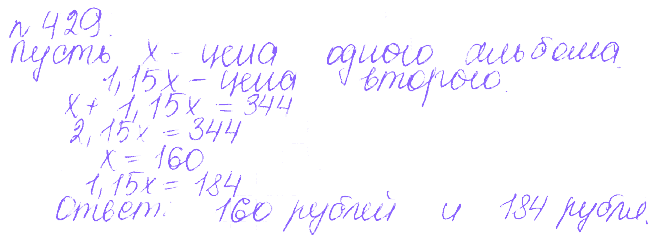 n 429.
Пусть x - цена одного альбома.
1,15x - цена второго.
x + 1,15x = 344
2,15x = 344
x = 160
1,15x = 184
Ответ: 160 рублей и 184 рубля.